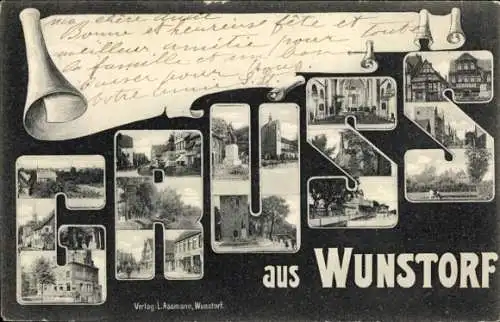 ma chère amie
Bonne et heureuse fête et toute
meilleur, amitié pour
la famille et un bon
baiser pour
Votre bonne
GRUSS
aus WUNSTORF
Verlag: L. Assmann, Wunstorf.